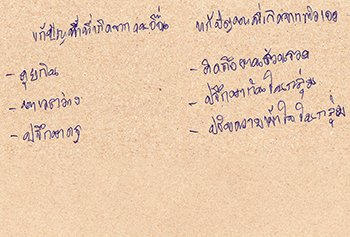 แก้ปัญหาที่เกิดจากคนอื่น
- คุยกัน
- หาเวลาว่าง
- ปรึกษาครู
แก้ปัญหาที่เกิดจากตัวเอง
- ปรึกษากันในกลุ่ม
- ปรับความเข้าใจในกลุ่ม